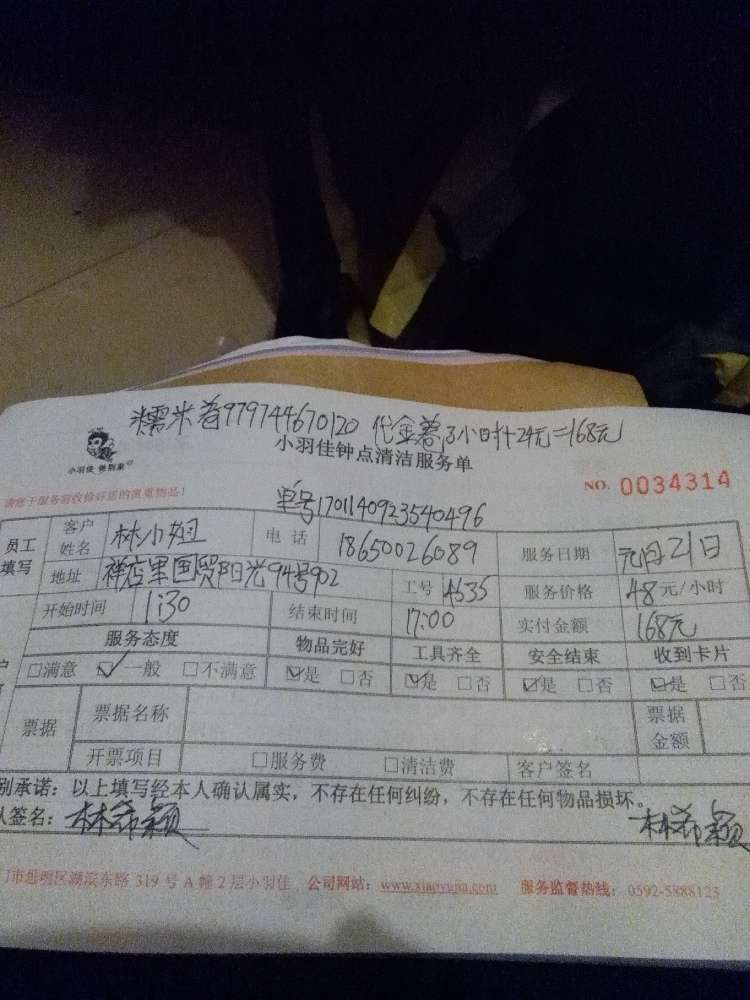 糯米券979744670120 代金券3小时+24元=168元
小羽佳钟点清洁服务单
小羽佳
NO. 0034314
请您于服务前收检好您的贵重物品!
单号1701140923540496
员工填写 客户姓名 林小姐 电话 18650026089 服务日期 元月21日
地址 祥店里国贸阳光94号902 工号 4635 服务价格 48元/小时
开始时间 1:30 结束时间 17:00 实付金额 168元
服务态度 物品完好 工具齐全 安全结束 收到卡片
□满意 ☑一般 □不满意 ☑是 □否 ☑是 □否 ☑是 □否 ☑是 □否
票据 票据名称 票据金额
开票项目 □服务费 □清洁费 客户签名
别承诺:以上填写经本人确认属实,不存在任何纠纷,不存在任何物品损坏。
签名:林希颖 林希颖
门市思明区湖滨东路 319 号 A 幢 2 层小羽佳 公司网站:www.xiaoyujia.com 服务监督热线:0592-5888123